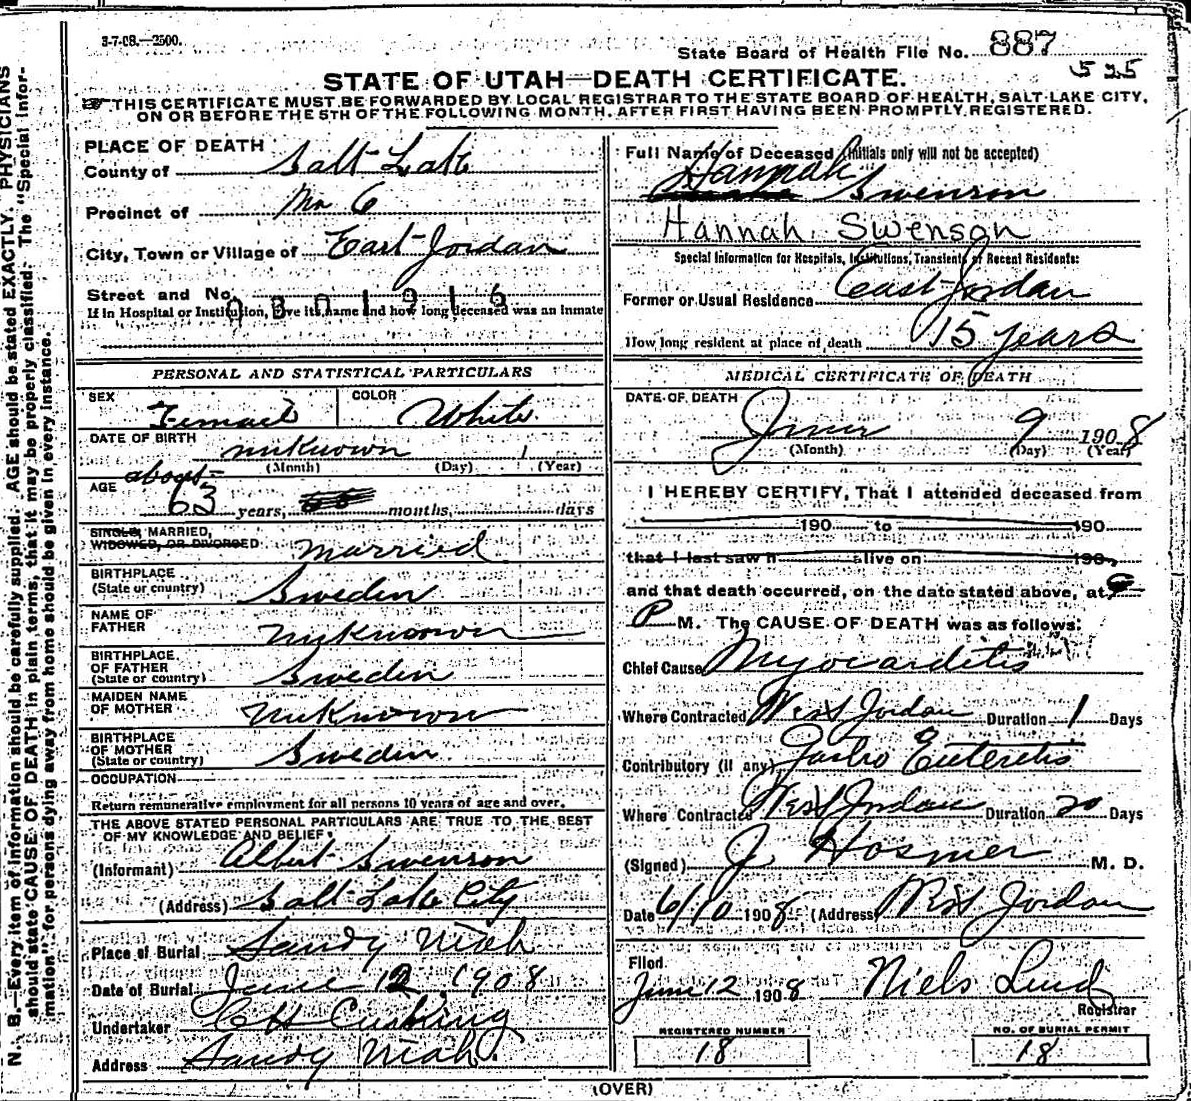 3-7-08.—2500.
State Board of Health File No. 887
525
STATE OF UTAH—DEATH CERTIFICATE.
THIS CERTIFICATE MUST BE FORWARDED BY LOCAL REGISTRAR TO THE STATE BOARD OF HEALTH, SALT LAKE CITY,
ON OR BEFORE THE 5TH OF THE FOLLOWING MONTH, AFTER FIRST HAVING BEEN PROMPTLY REGISTERED.
N. B.—Every item of information should be carefully supplied. AGE should be stated EXACTLY. PHYSICIANS
should state CAUSE OF DEATH in plain terms, that it may be properly classified. The "Special Infor-
mation" for persons dying away from home should be given in every instance.
PLACE OF DEATH
County of Salt Lake
Precinct of No 6
City, Town or Village of East Jordan
Street and No.
If in Hospital or Institution, give its name and how long deceased was an inmate
PERSONAL AND STATISTICAL PARTICULARS
SEX Female COLOR White.
DATE OF BIRTH unknown
(Month) (Day) (Year)
about
AGE 63 years, months, days
SINGLE, MARRIED,
WIDOWED, OR DIVORCED married
BIRTHPLACE
(State or country) Sweden
NAME OF
FATHER unknown
BIRTHPLACE
OF FATHER
(State or country) Sweden
MAIDEN NAME
OF MOTHER unknown
BIRTHPLACE
OF MOTHER
(State or country) Sweden
OCCUPATION
Return remunerative employment for all persons 10 years of age and over.
THE ABOVE STATED PERSONAL PARTICULARS ARE TRUE TO THE BEST
OF MY KNOWLEDGE AND BELIEF.
(Informant) Albert Swenson
(Address) Salt Lake City
Place of Burial Sandy Utah
Date of Burial June 12, 1908
Undertaker C H Cushing
Address Sandy Utah.
Full Name of Deceased (Initials only will not be accepted)
Hannah Swenson
Hannah Swenson
Special Information for Hospitals, Institutions, Transients or Recent Residents:
Former or Usual Residence East Jordan
How long resident at place of death 15 years
MEDICAL CERTIFICATE OF DEATH
DATE OF DEATH
June 9 1908
(Month) (Day) (Year)
I HEREBY CERTIFY, That I attended deceased from
190 to 190
that I last saw h alive on 190,
and that death occurred, on the date stated above, at
P M. The CAUSE OF DEATH was as follows:
Chief Cause Myocarditis
Where Contracted West Jordan Duration 1 Days
Contributory (if any) Gastro Enteritis
Where Contracted West Jordan Duration 20 Days
(Signed) J. Hosmer M. D.
Date 6/10 1908 (Address) West Jordan
Filed
June 12 1908 Niels Lind
Registrar
REGISTERED NUMBER
18
NO. OF BURIAL PERMIT
18
(OVER)